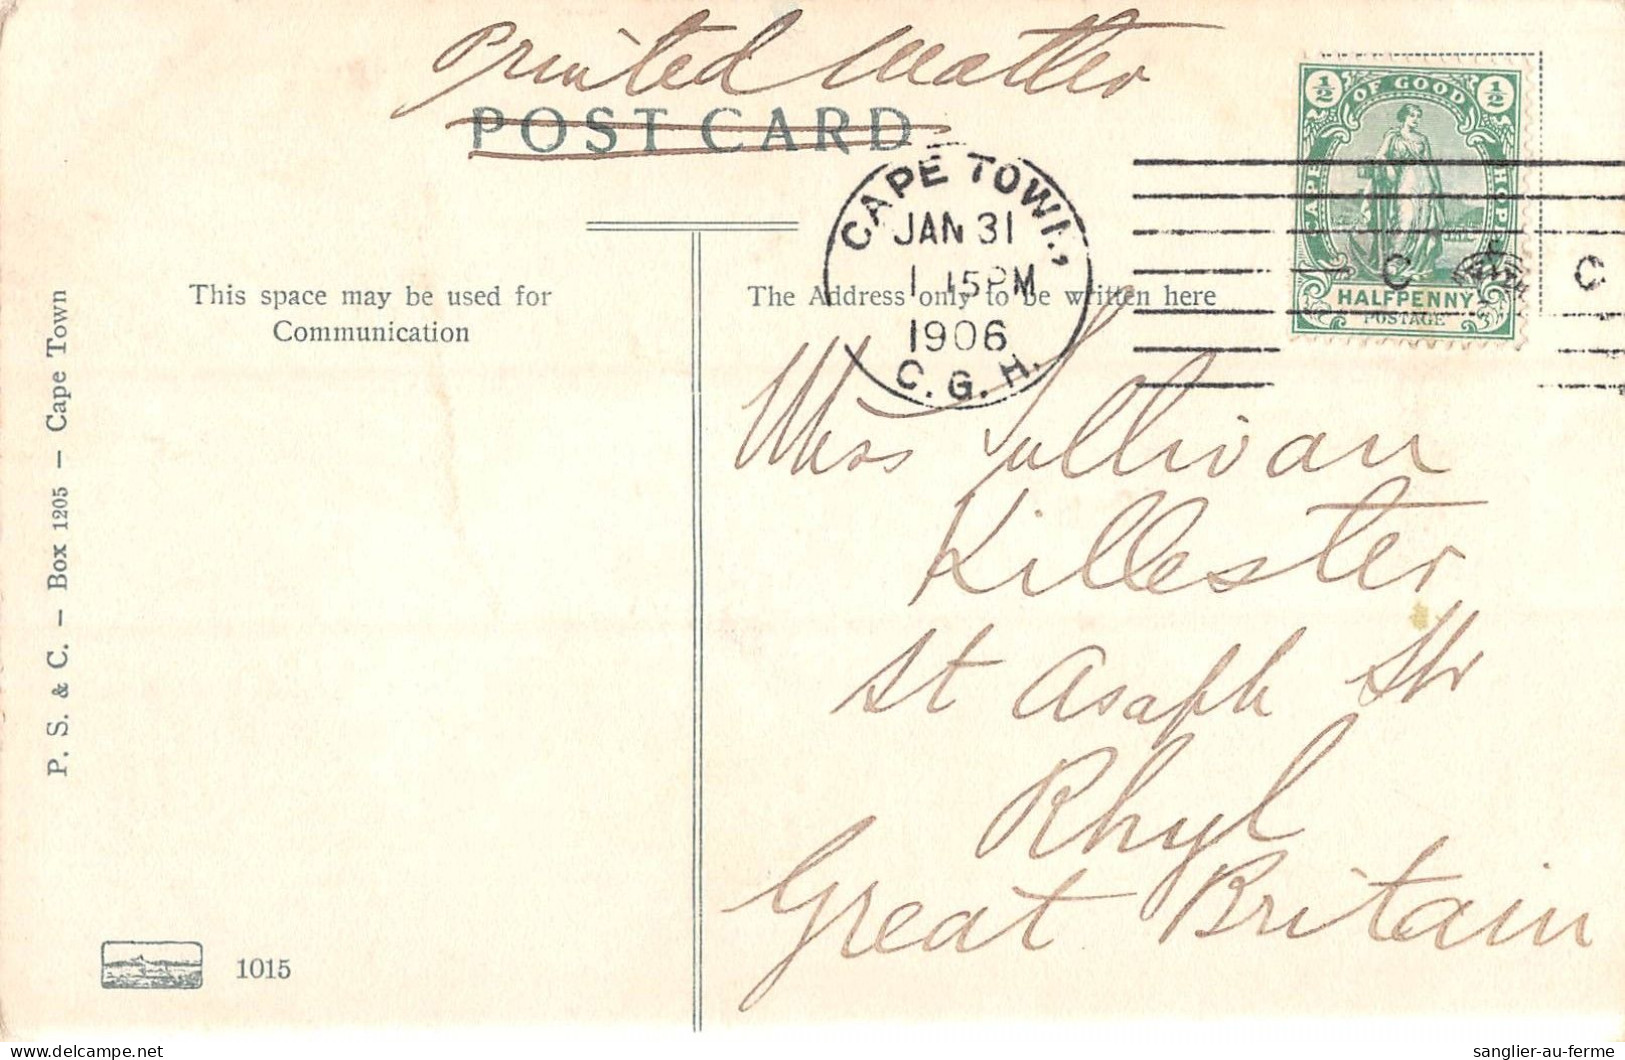 Printed Matter
POST CARD
CAPE TOWN,
JAN 31
1 15PM
1906
C. G. H.
½ OF GOOD ½
CAPE
HOPE
HALFPENNY
POSTAGE
C C
This space may be used for
Communication
The Address only to be written here
Miss Sullivan
Killester
St Asaph Str
Rhyl
Great Britain
P. S. & C. — Box 1205 — Cape Town
1015
sanglier-au-ferme